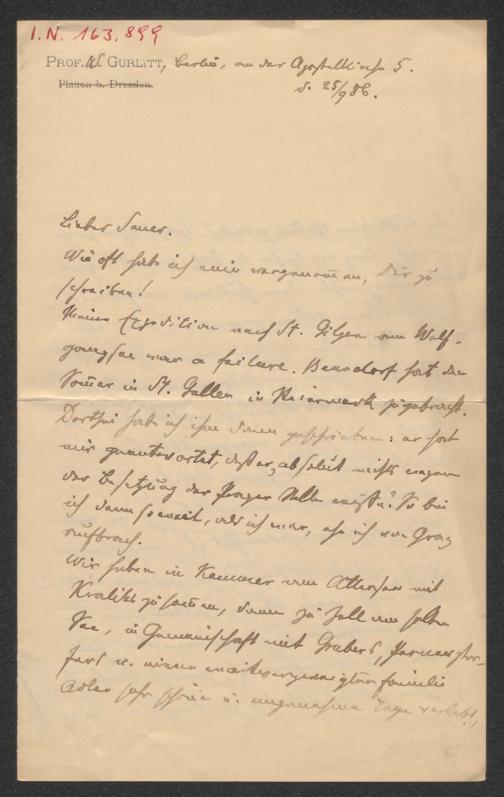 I.N. 163.899
PROF. W. GURLITT, Berlin, an der Apostelkirche 5.
Plauen b. Dresden.
d. 25/9 86.
Lieber Sauer.
Wie oft habe ich mir vorgenommen, Dir zu
schreiben!
Meine Expedition nach St. Gilgen am Wolf-
gangsee war a failure. Benndorf hat den
Sommer in St. Gallen in Steiermark zugebracht.
Dorthin habe ich ihm dann geschrieben: er hat
mir geantwortet, daß er „absolut nichts wegen
der Besetzung der Prager Stelle wisse“. So bin
ich denn so weit, als ich war, ehe ich von Graz
aufbrach.
Wir haben in Kammer am Attersee mit
Kraliks zusammen, dann zu Zell am selben
See, in Gemeinschaft mit Grubers, Pernerstor-
fers u. einer weitverzweigten Familie
Adler sehr schöne u. angenehme Tage verlebt,